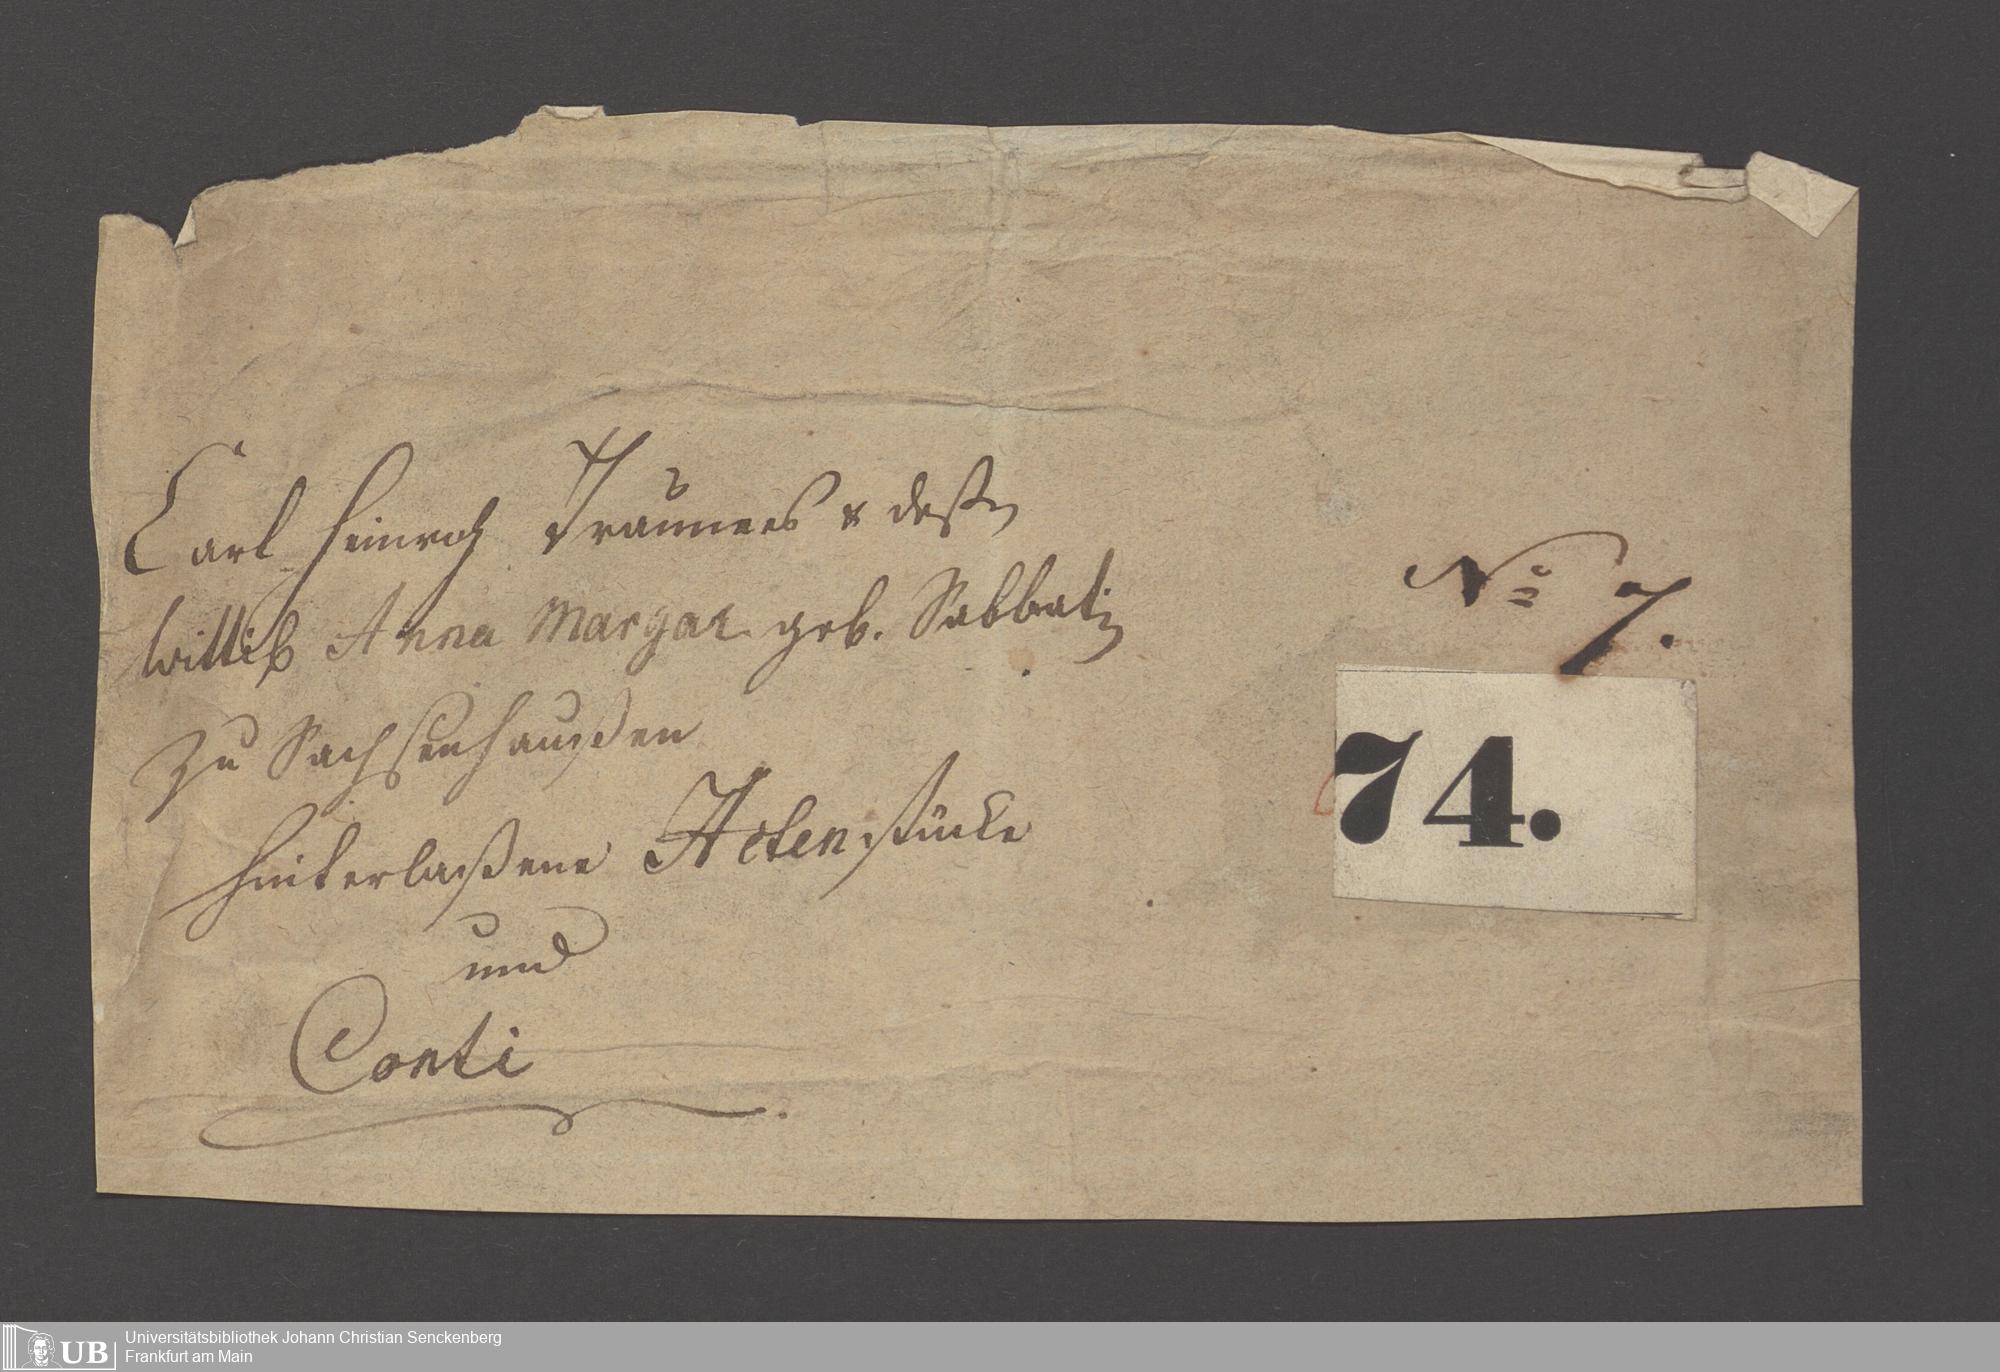 Carl Heinrich Traüneers & deßen
Wittib Anna Margar. geb. Sabbati
zu Sachsenhaußen
hinterlaßene Actenstücke
und
Conti
No 7.
74.
UB
Universitätsbibliothek Johann Christian Senckenberg
Frankfurt am Main